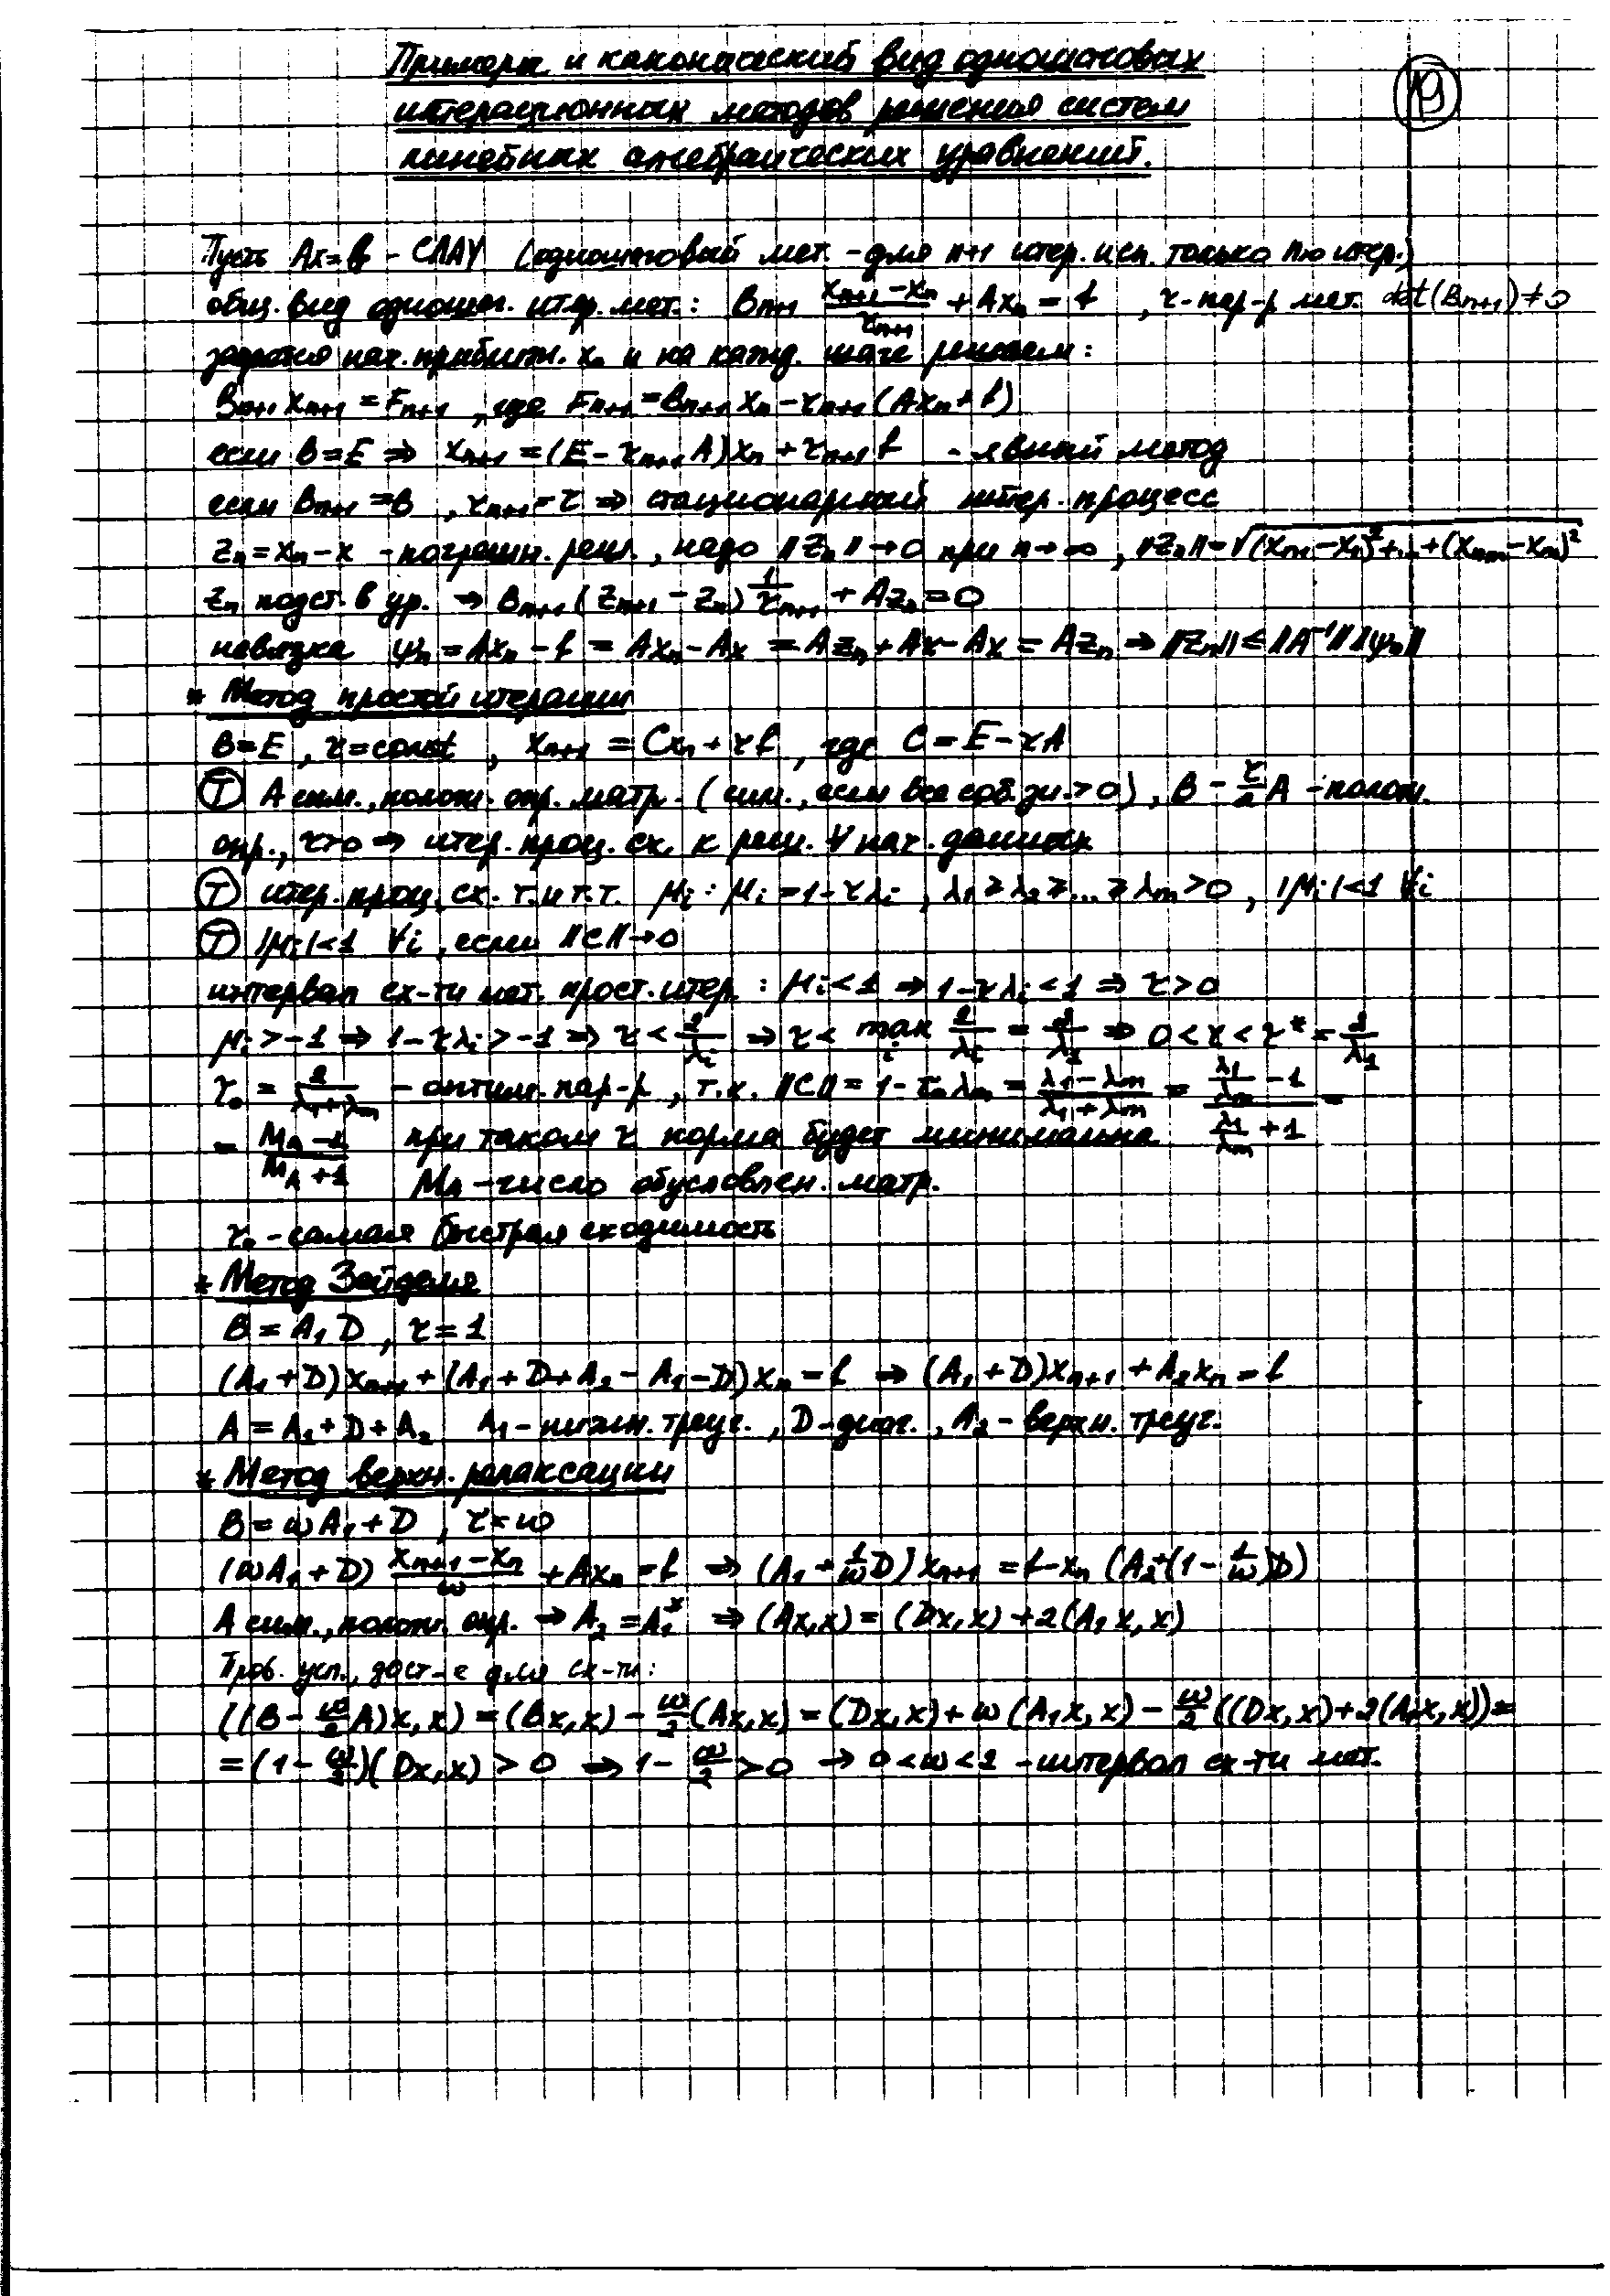 Примеры и канонический вид одношаговых
итерационных методов решения систем
линейных алгебраических уравнений.
19
Пусть Ax=b - СЛАУ (одношаговый мет. - для n+1 итер. исп. только n-ю итер.)
общ. вид одношаг. итер. мет.: Bₙ₊₁ (xₙ₊₁ - xₙ)/τₙ₊₁ + Axₙ = f , τ-пар-р мет. det(Bₙ₊₁)≠0
задается нач. прибл. x₀ и на кажд. шаге решаем:
Bₙ₊₁xₙ₊₁ = Fₙ₊₁ , где Fₙ₊₁ = Bₙ₊₁xₙ - τₙ₊₁(Axₙ + f)
если B=E ⇒ xₙ₊₁ = (E - τₙ₊₁A)xₙ + τₙ₊₁f - явный метод
если Bₙ₊₁ = B , τₙ₊₁ = τ ⇒ стационарный итер. процесс
zₙ = xₙ - x - погрешн. реш. , надо ‖zₙ‖→0 при n→∞ , ‖zₙ‖ = √((xₙ₁ - x₁)² + ... + (xₙₘ - xₘ)²)
zₙ подст. в ур. ⇒ Bₙ₊₁(zₙ₊₁ - zₙ) 1/τₙ₊₁ + Azₙ = 0
невязка ψₙ = Axₙ - f = Axₙ - Ax = Azₙ + Ax - Ax = Azₙ ⇒ ‖zₙ‖ ≤ ‖A⁻¹‖ ‖ψₙ‖
* Метод простой итерации
B=E , τ=const , xₙ₊₁ = Cxₙ + τf , где C = E - τA
Ⓣ A сим., полож. опр. матр. (сим., если все соб. зн. > 0) , B - τ/2 A - полож.
опр., τ>0 ⇒ итер. проц. сх. к реш. ∀ нач. данных
Ⓣ итер. проц. сх. т. и т.т. μᵢ : μᵢ = 1 - τλᵢ , λ₁ ≥ λ₂ ≥ ... ≥ λₘ > 0 , |μᵢ| < 1 ∀i
Ⓣ |μᵢ| < 1 ∀i , если ‖C‖→0
интервал сх-ти мет. прост. итер. : μᵢ < 1 ⇒ 1 - τλᵢ < 1 ⇒ τ > 0
μᵢ > -1 ⇒ 1 - τλᵢ > -1 ⇒ τ < 2/λᵢ ⇒ τ < maxᵢ 2/λᵢ = 2/λ₁ ⇒ 0 < τ < τ* = 2/λ₁
τ₀ = 2/(λ₁+λₘ) - оптим. пар-р , т.к. ‖C‖ = 1 - τ₀λₘ = (λ₁ - λₘ)/(λ₁ + λₘ) = (λ₁/λₘ - 1)/(λ₁/λₘ + 1) =
= (M_A - 1)/(M_A + 1) при таком τ норма будет минимальна
M_A - число обусловлен. матр.
τ₀ - самая быстрая сходимость
* Метод Зейделя
B = A₁D , τ = 1
(A₁ + D)xₙ₊₁ + (A₁ + D + A₂ - A₁ - D)xₙ = f ⇒ (A₁ + D)xₙ₊₁ + A₂xₙ = f
A = A₁ + D + A₂ A₁ - нижн. треуг. , D - диаг. , A₂ - верхн. треуг.
* Метод верхн. релаксации
B = ωA₁ + D , τ = ω
(ωA₁ + D) (xₙ₊₁ - xₙ)/ω + Axₙ = f ⇒ (A₁ + 1/ω D)xₙ₊₁ = f - xₙ(A₂ + (1 - 1/ω)D)
A сим., полож. опр. ⇒ A₂ = A₁* ⇒ (Ax,x) = (Dx,x) + 2(A₁x,x)
Пров. усл., дост-е для сх-ти:
((B - ω/2 A)x,x) = (Bx,x) - ω/2 (Ax,x) = (Dx,x) + ω(A₁x,x) - ω/2 ((Dx,x) + 2(A₁x,x)) =
= (1 - ω/2)(Dx,x) > 0 ⇒ 1 - ω/2 > 0 ⇒ 0 < ω < 2 - интервал сх-ти мет.